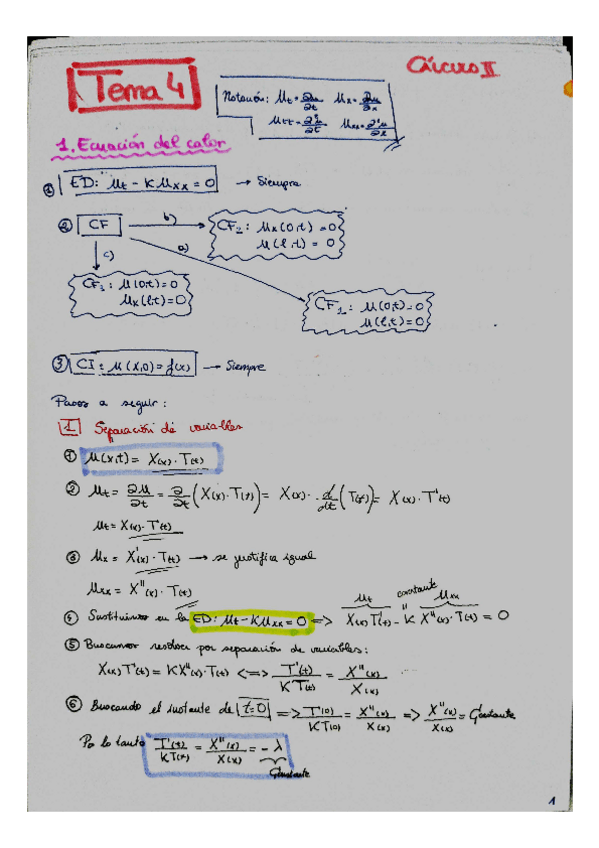 Cálculo II
Tema 4
Notación: Mt = ∂u/∂t   Mx = ∂u/∂x
Mtt = ∂²u/∂t   Mxx = ∂²u/∂x
1. Ecuación del calor
① ED: Mt - K Mxx = 0 → Siempre
② CF
b) CF₂: Mx(0,t) = 0
M(l,t) = 0
a)
c)
CF₃: M(0,t) = 0
Mx(l,t) = 0
CF₁: M(0,t) = 0
M(l,t) = 0
③ CI: M(x,0) = f(x) → Siempre
Pasos a seguir:
1 Separación de variables
① M(x,t) = X(x) · T(t)
② Mt = ∂M/∂t = ∂/∂t (X(x) · T(t)) = X(x) · d/dt (T(t)) = X(x) · T'(t)
Mt = X(x) · T'(t)
③ Mx = X'(x) · T(t) → se justifica igual
Mxx = X''(x) · T(t)
Mt constante Mxx
④ Sustituimos en la ED: Mt - K Mxx = 0 => X(x) T'(t) - K X''(x) · T(t) = 0
⑤ Buscamos resolver por separación de variables:
X(x) T'(t) = K X''(x) · T(t) <=> T'(t)/K T(t) = X''(x)/X(x)
⑥ Buscando el instante de t=0 => T'(0)/K T(0) = X''(x)/X(x) => X''(x)/X(x) = Constante
Po lo tanto T'(t)/K T(t) = X''(x)/X(x) = - λ
Constante
1